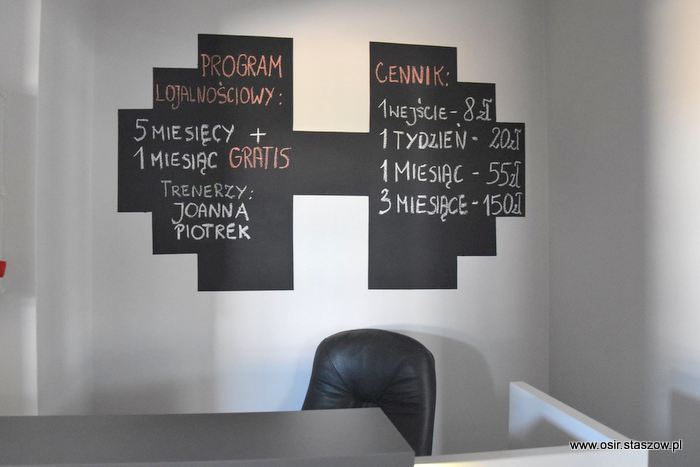 PROGRAM
LOJALNOŚCIOWY:
5 MIESIĘCY +
1 MIESIĄC GRATIS
TRENERZY:
JOANNA
PIOTREK
CENNIK:
1 WEJŚCIE - 8 ZŁ
1 TYDZIEŃ - 20 ZŁ
1 MIESIĄC - 55 ZŁ
3 MIESIĄCE - 150 ZŁ
www.osir.staszow.pl